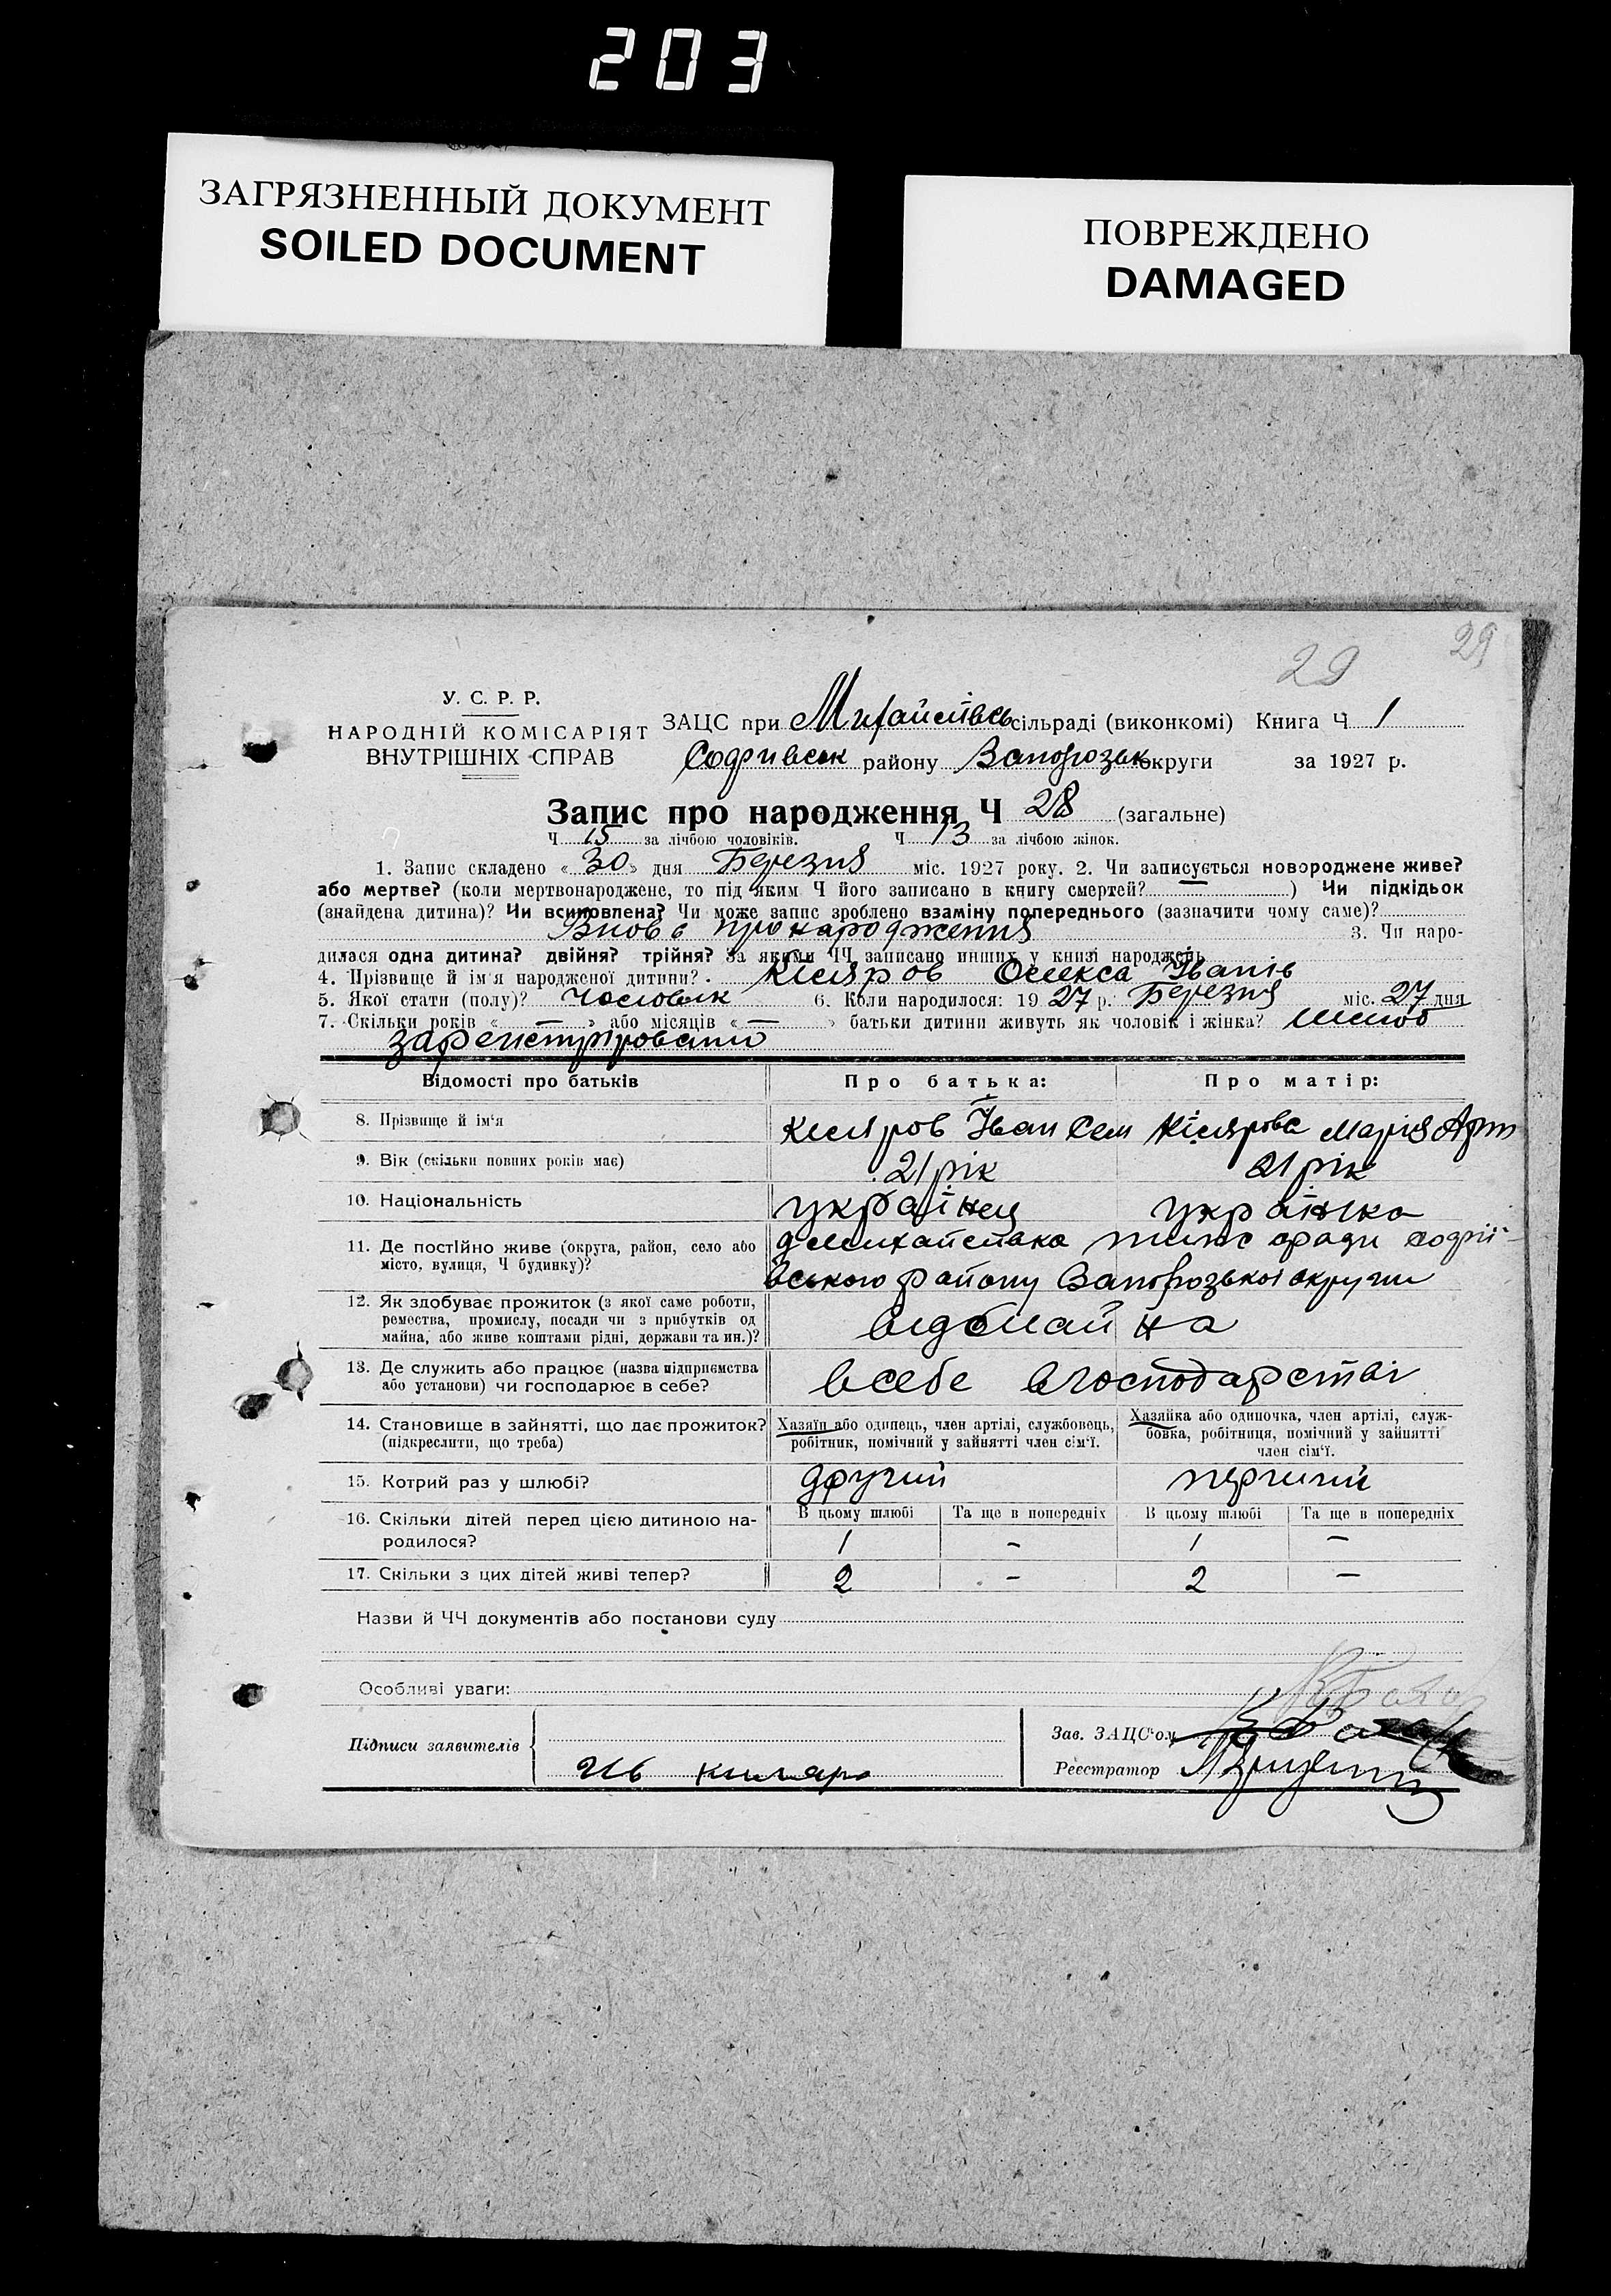 203
ЗАГРЯЗНЕННЫЙ ДОКУМЕНТ
SOILED DOCUMENT
ПОВРЕЖДЕНО
DAMAGED
29
29
У. С. Р. Р.
НАРОДНІЙ КОМІСАРІЯТ
ВНУТРІШНІХ СПРАВ
ЗАЦС при Михайлівсь сільраді (виконкомі) Книга Ч 1
району Запорозьк округи за 1927 р.
Запис про народження Ч 28 (загальне)
Ч 15 за лічбою чоловіків. Ч 13 за лічбою жінок.
1. Запис складено «30» дня Березня міс. 1927 року. 2. Чи записується новороджене живе?
або мертве? (коли мертвонароджене, то під яким Ч його записано в книгу смертей? —) Чи підкідьок
(знайдена дитина)? Чи всиновлена? Чи може запис зроблено взаміну попереднього (зазначити чому саме)?
про народження 3. Чи наро-
дилася одна дитина? двійня? трійня? За якими ЧЧ записано инших у книзі народжень
4. Прізвище й ім'я народженої дитини? Кіляров Олекса Іванів
5. Якої стати (полу)? Чоловік 6. Коли народилося: 1927 р. Березня міс. 27 дня
7. Скільки років «—» або місяців «—» батьки дитини живуть як чоловік і жінка? шлюб
зарегистріровано
Відомості про батьків Про батька: Про матір:
8. Прізвище й ім'я Кіляров Іван Сем Кілярова Марія Арт
9. Вік (скільки повних років має) 21 рік 21 рік
10. Національність українец українка
11. Де постійно живе (округа, район, село або
місто, вулиця, Ч будинку)?
вського району Запорозької округи
12. Як здобуває прожиток (з якої саме роботи,
ремества, промислу, посади чи з прибутків од
майна, або живе коштами рідні, держави та ин.)?
від майна
13. Де служить або працює (назва підприємства
або установи) чи господарює в себе?
всебе вгосподарстві
14. Становище в зайнятті, що дає прожиток?
(підкреслити, що треба)
Хазяїн або одинець, член артілі, службовець,
робітник, помічний у зайнятті член сім'ї.
Хазяйка або одиночка, член артілі, служ-
бовка, робітниця, помічний у зайнятті
член сім'ї.
15. Котрий раз у шлюбі? другий перший
16. Скільки дітей перед цією дитиною на-
родилося?
В цьому шлюбі Та ще в попередніх В цьому шлюбі Та ще в попередніх
1 - 1 —
17. Скільки з цих дітей живі тепер? 2 - 2 —
Назви й ЧЧ документів або постанови суду
Особливі уваги:
Підписи заявителів
Зав. ЗАЦС'ом
Реєстратор